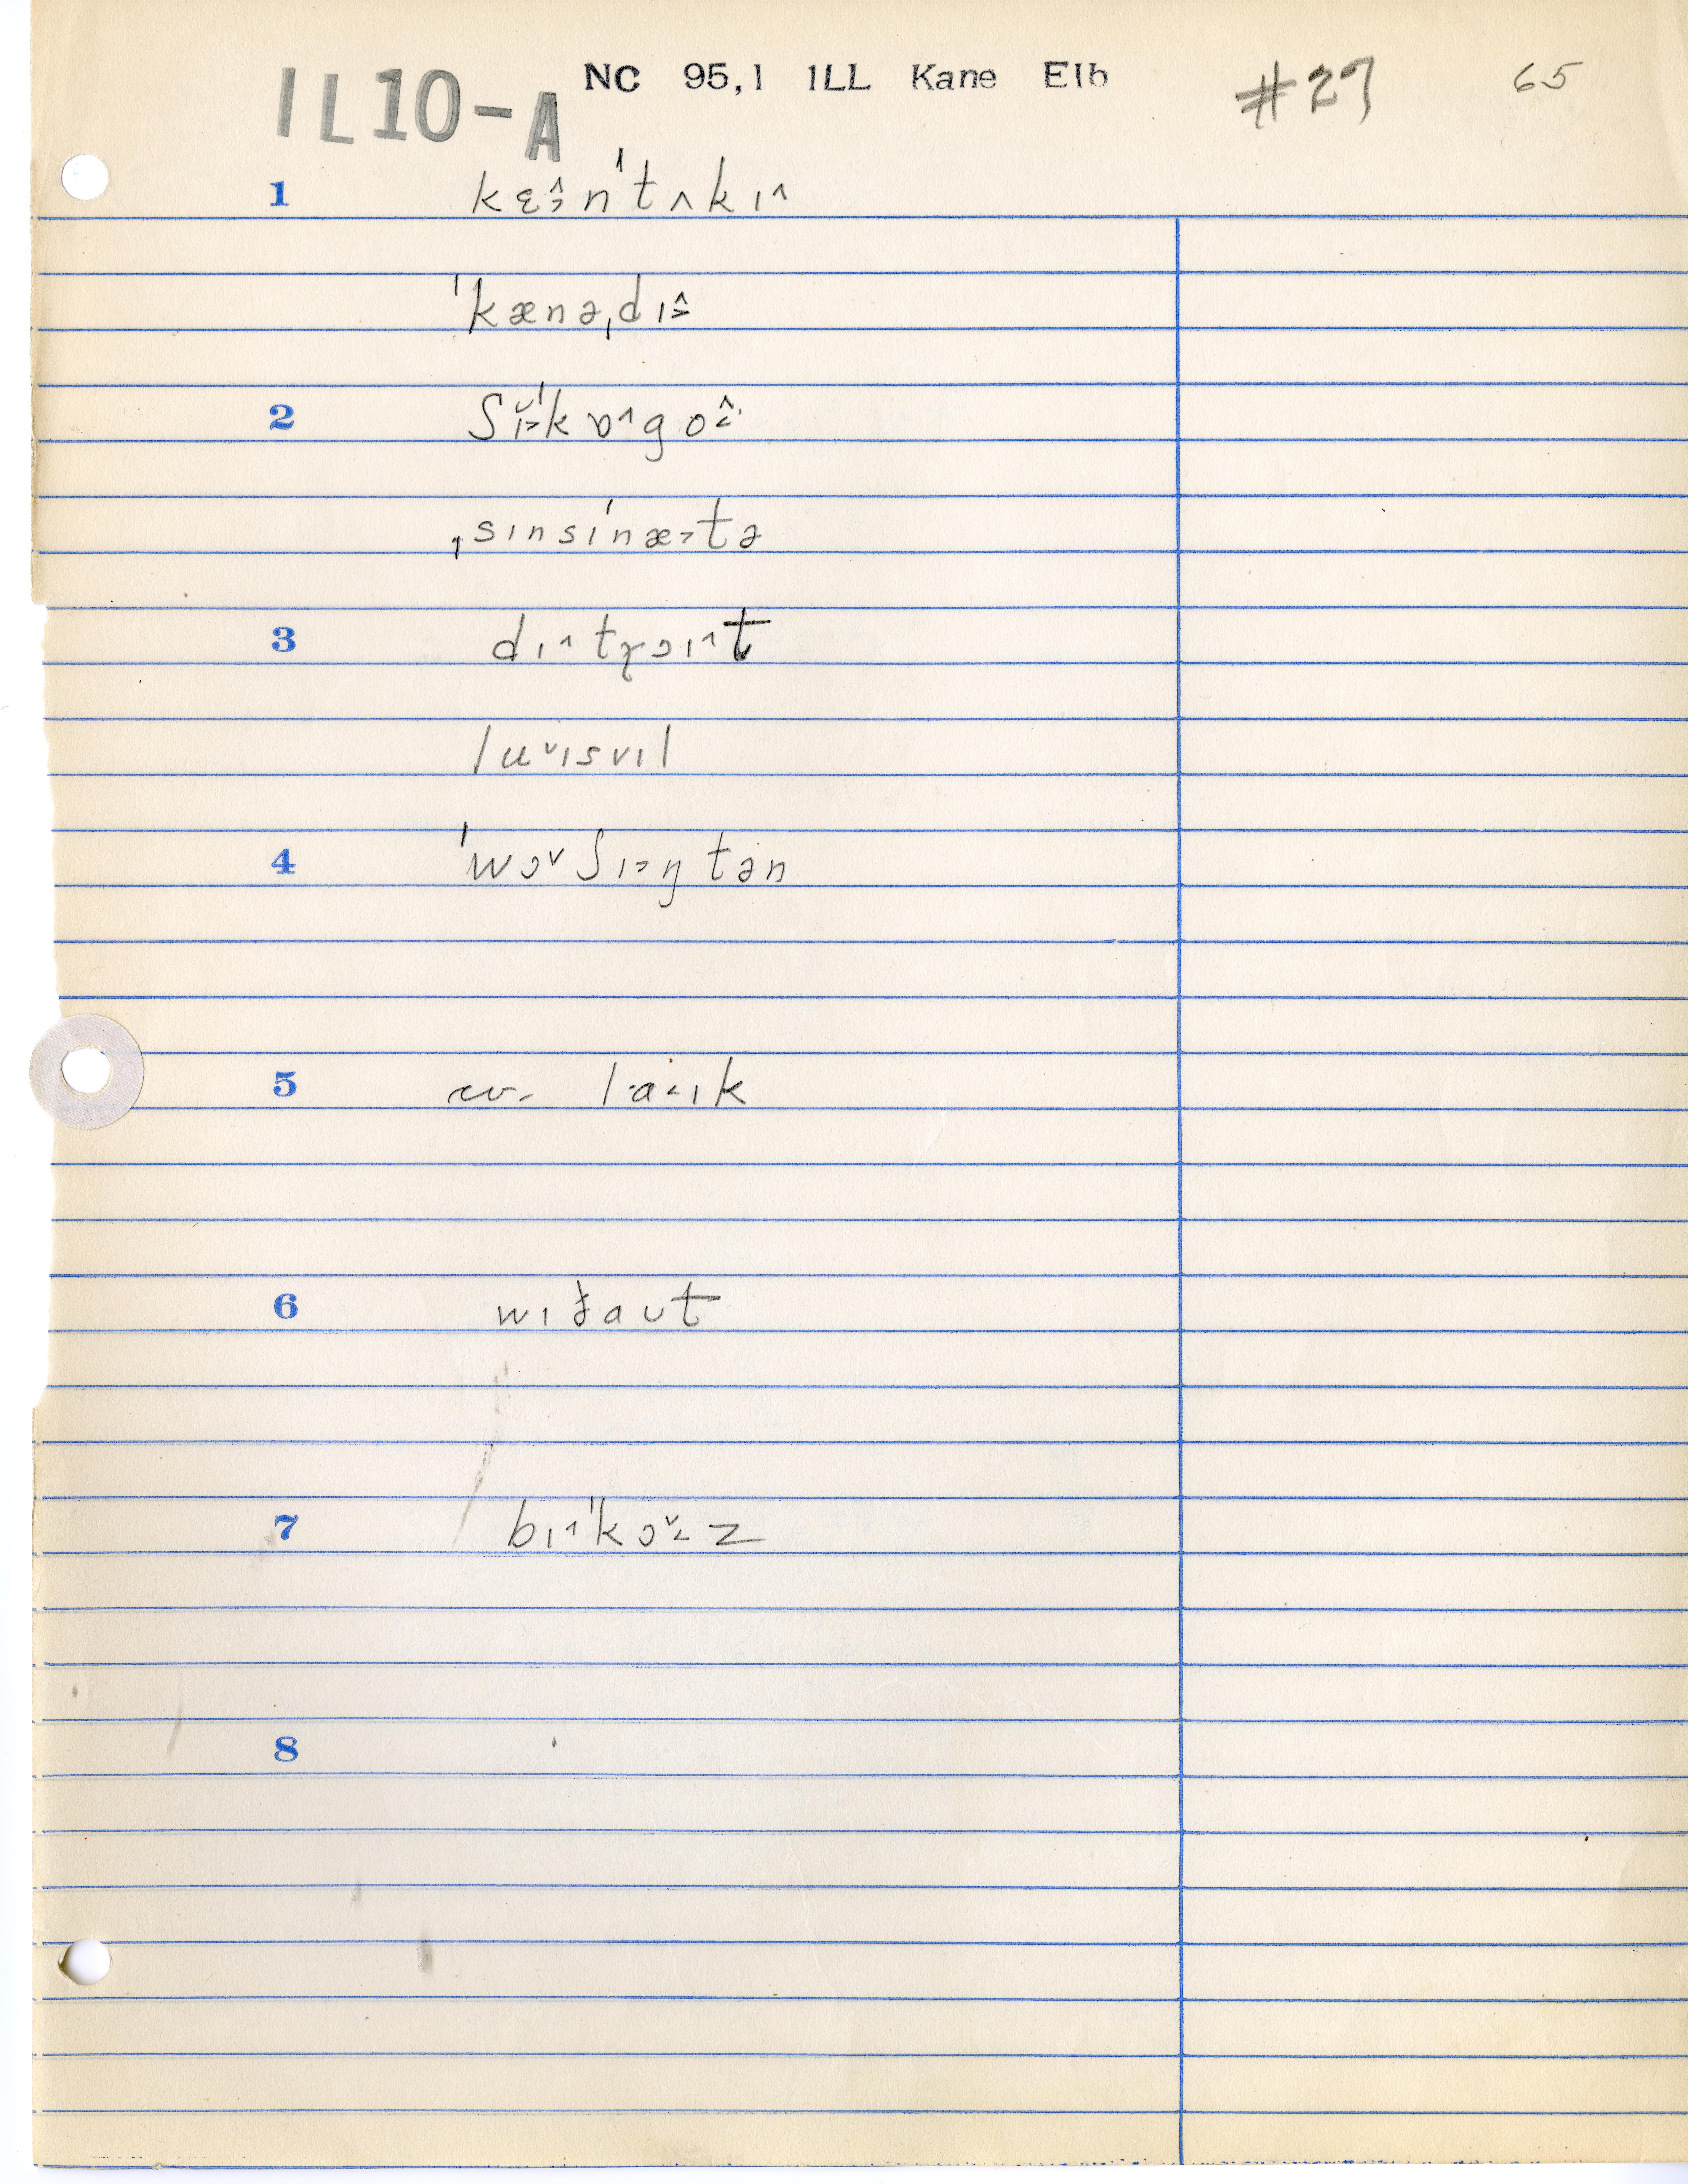 IL10-A NC 95,1 ILL Kane Elb #27 65
1 kɛ̝˃n'tʌkɪ˄
'kænəˌdɪ̝˃
2 ʃɪ̆˃'kɒ˄goˑ̂˂
ˌsɪnsɪ'næ˃tə
3 dɪ˄tɹ̣ɔɪ˄t
luˇɪsvɪl
4 'wɔˇʃɪ˃ŋtən
5 laˑ˂ɪk
6 wɪðaʊt
7 bɪ˄'kɔˇ˂z
8